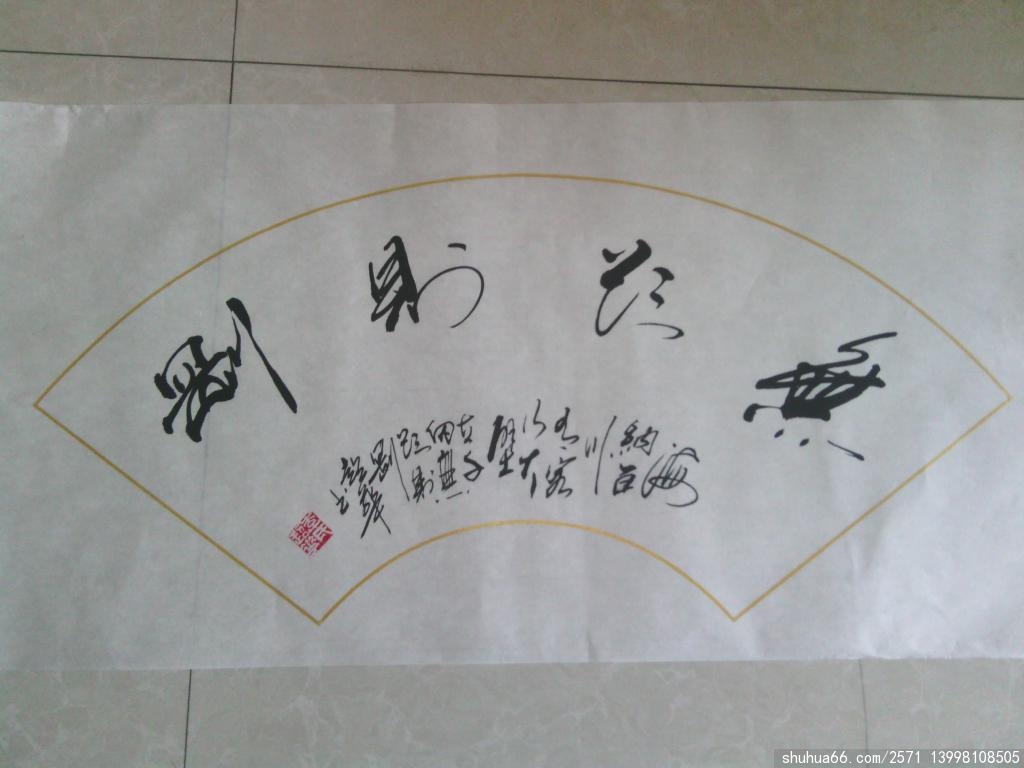 無欲則剛
海納百川
有容乃大
壁立千仞無
欲則剛
書
shuhua66.com/2571 13998108505